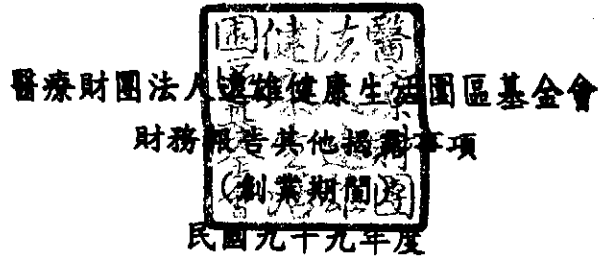 醫療財團法人遠雄健康生活園區基金會
財務報告其他揭露事項
(創業期間)
民國九十九年度